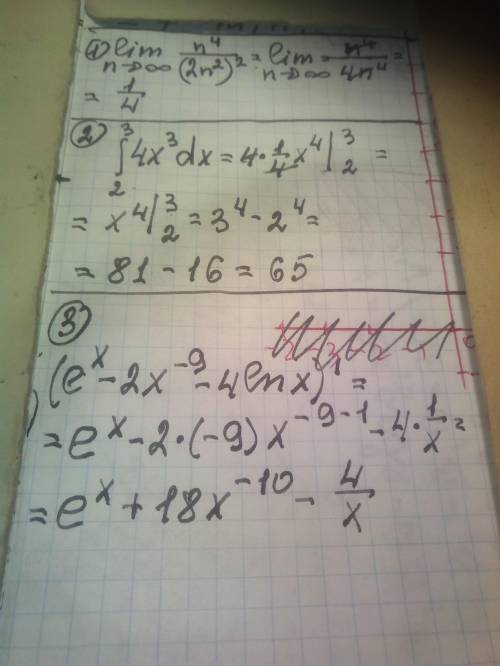 1) lim n→∞ n⁴/(2n²)² = lim n→∞ n⁴/4n⁴ =
= 1/4
2) ∫₂³ 4x³dx = 4·1/4 x⁴|₂³ =
= x⁴|₂³ = 3⁴ - 2⁴ =
= 81 - 16 = 65
3)
(eˣ - 2x⁻⁹ - 4ln x)' =
= eˣ - 2·(-9)x⁻⁹⁻¹ - 4·1/x =
= eˣ + 18x⁻¹⁰ - 4/x